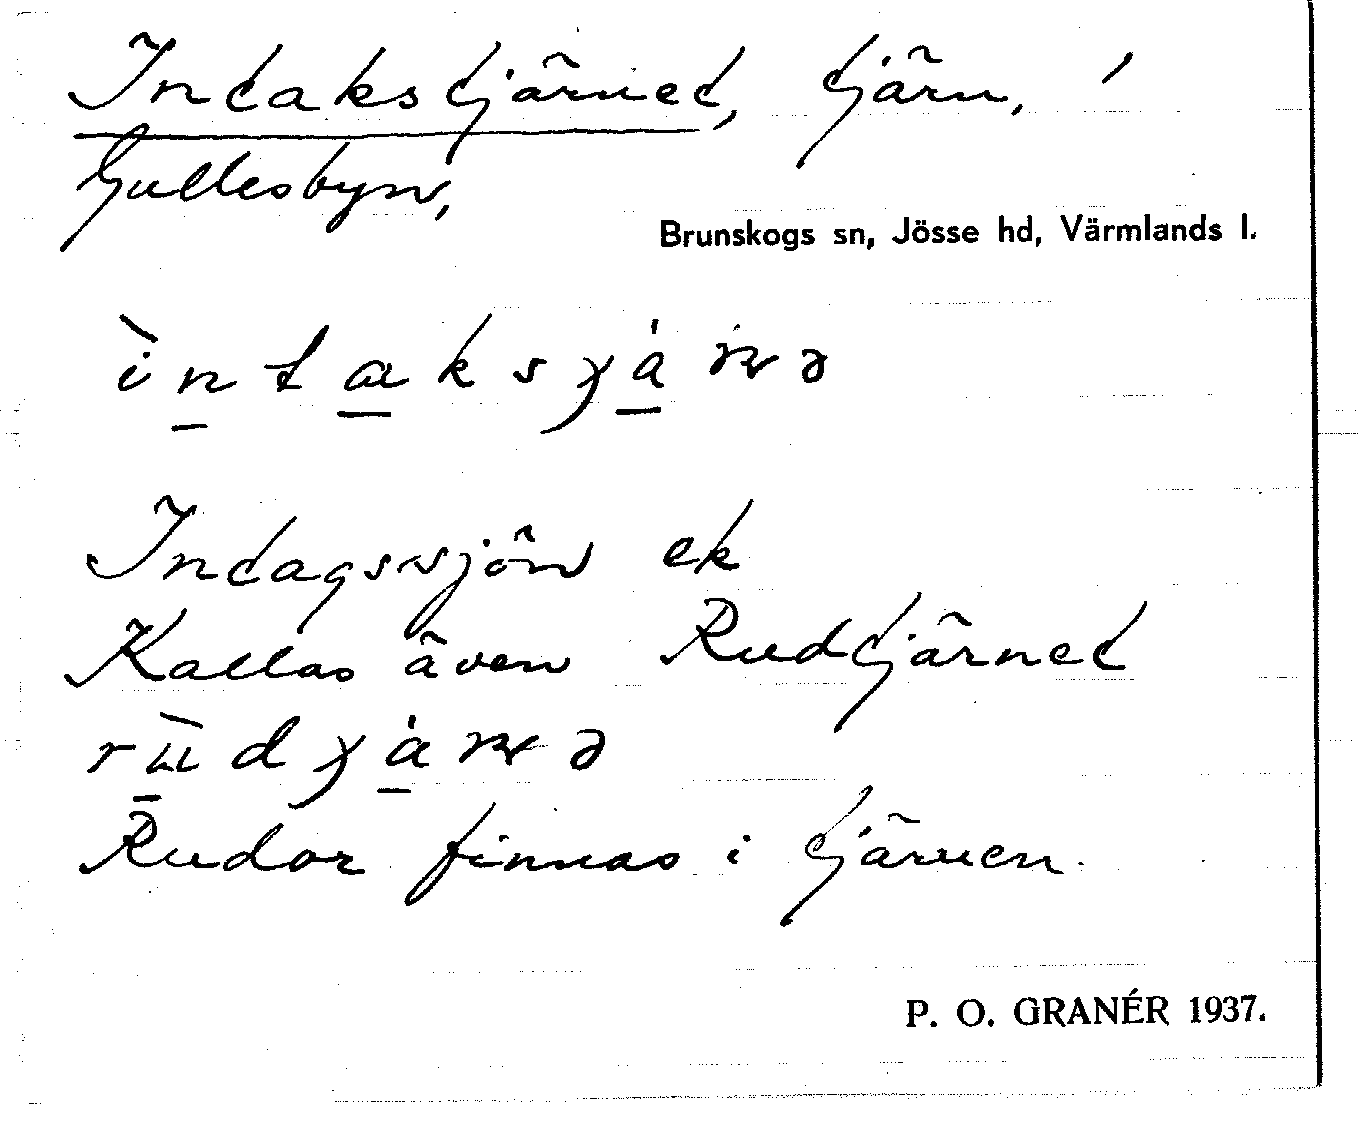 Intakstjärnet, tjärn, /
Gullesbyn,
Brunskogs sn, Jösse hd, Värmlands l.
Intagssjön ek
Kallas även Rudtjärnet
Rudor finnas i tjärnen.
P. O. GRANÉR 1937.